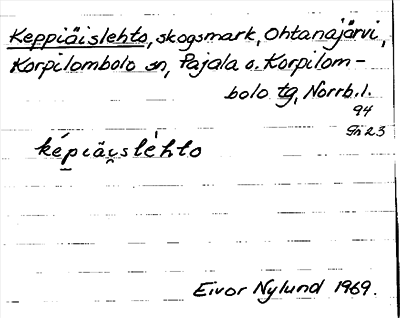 Keppiäislehto, skogsmark, Ohtanajärvi,
Korpilombolo sn, Pajala o. Korpilom-
bolo tg, Norrb.l.
94
Gh 23
képiäi̯sléhto
Eivor Nylund 1969.